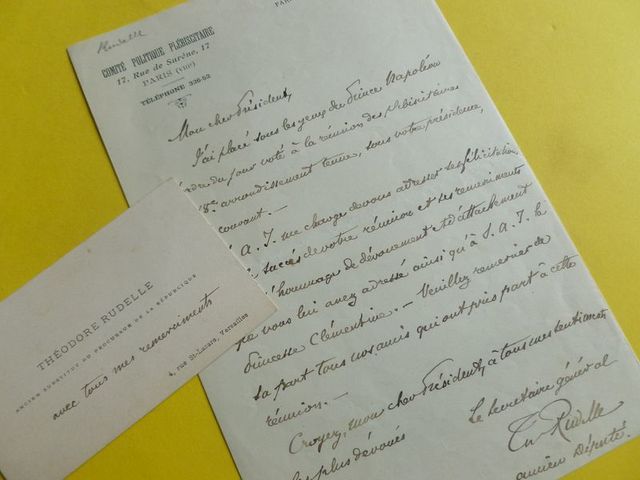 Rudelle
PARIS
COMITÉ POLITIQUE PLÉBISCITAIRE
17, Rue de Surène, 17
PARIS (VIIIe)
TÉLÉPHONE 326-52
Mon cher Président,
J'ai placé sous les yeux du Prince Napoléon
du jour voté à la réunion des plébiscitaires
18e arrondissement tenue, sous votre présidence,
courant. —
A. I. me charge de vous adresser ses félicitations
succès de votre réunion et ses remerciments
l'hommage de dévouement et d'attachement
que vous lui avez adressé ainsi qu'à S. A. I. la
Princesse Clémentine. — Veuillez remercier de
sa part tous nos amis qui ont pris part à cette
réunion. —
Croyez, mon cher Président, à tous mes sentiments
les plus dévoués
Le Secrétaire général
Th Rudelle
ancien Député
THÉODORE RUDELLE
ANCIEN SUBSTITUT DU PROCUREUR DE LA RÉPUBLIQUE
avec tous mes remerciments
4, rue St-Lazare, Versailles